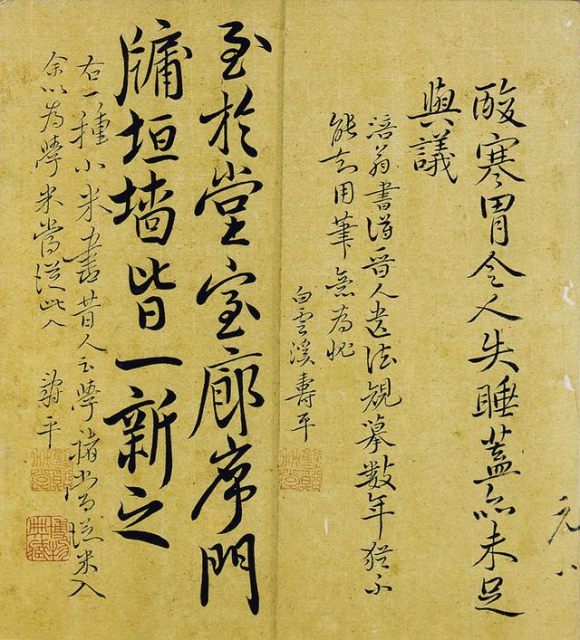 酸寒胃令人失睡蓋亦未足
與議
涪翁書得晉人遺法規摹數年猶不
能知用筆
白雲溪壽平
至於堂室廊席門
牖垣墻皆一新之
右一種小米書昔人云學褚當從米入
余以為學米當從此入
壽平